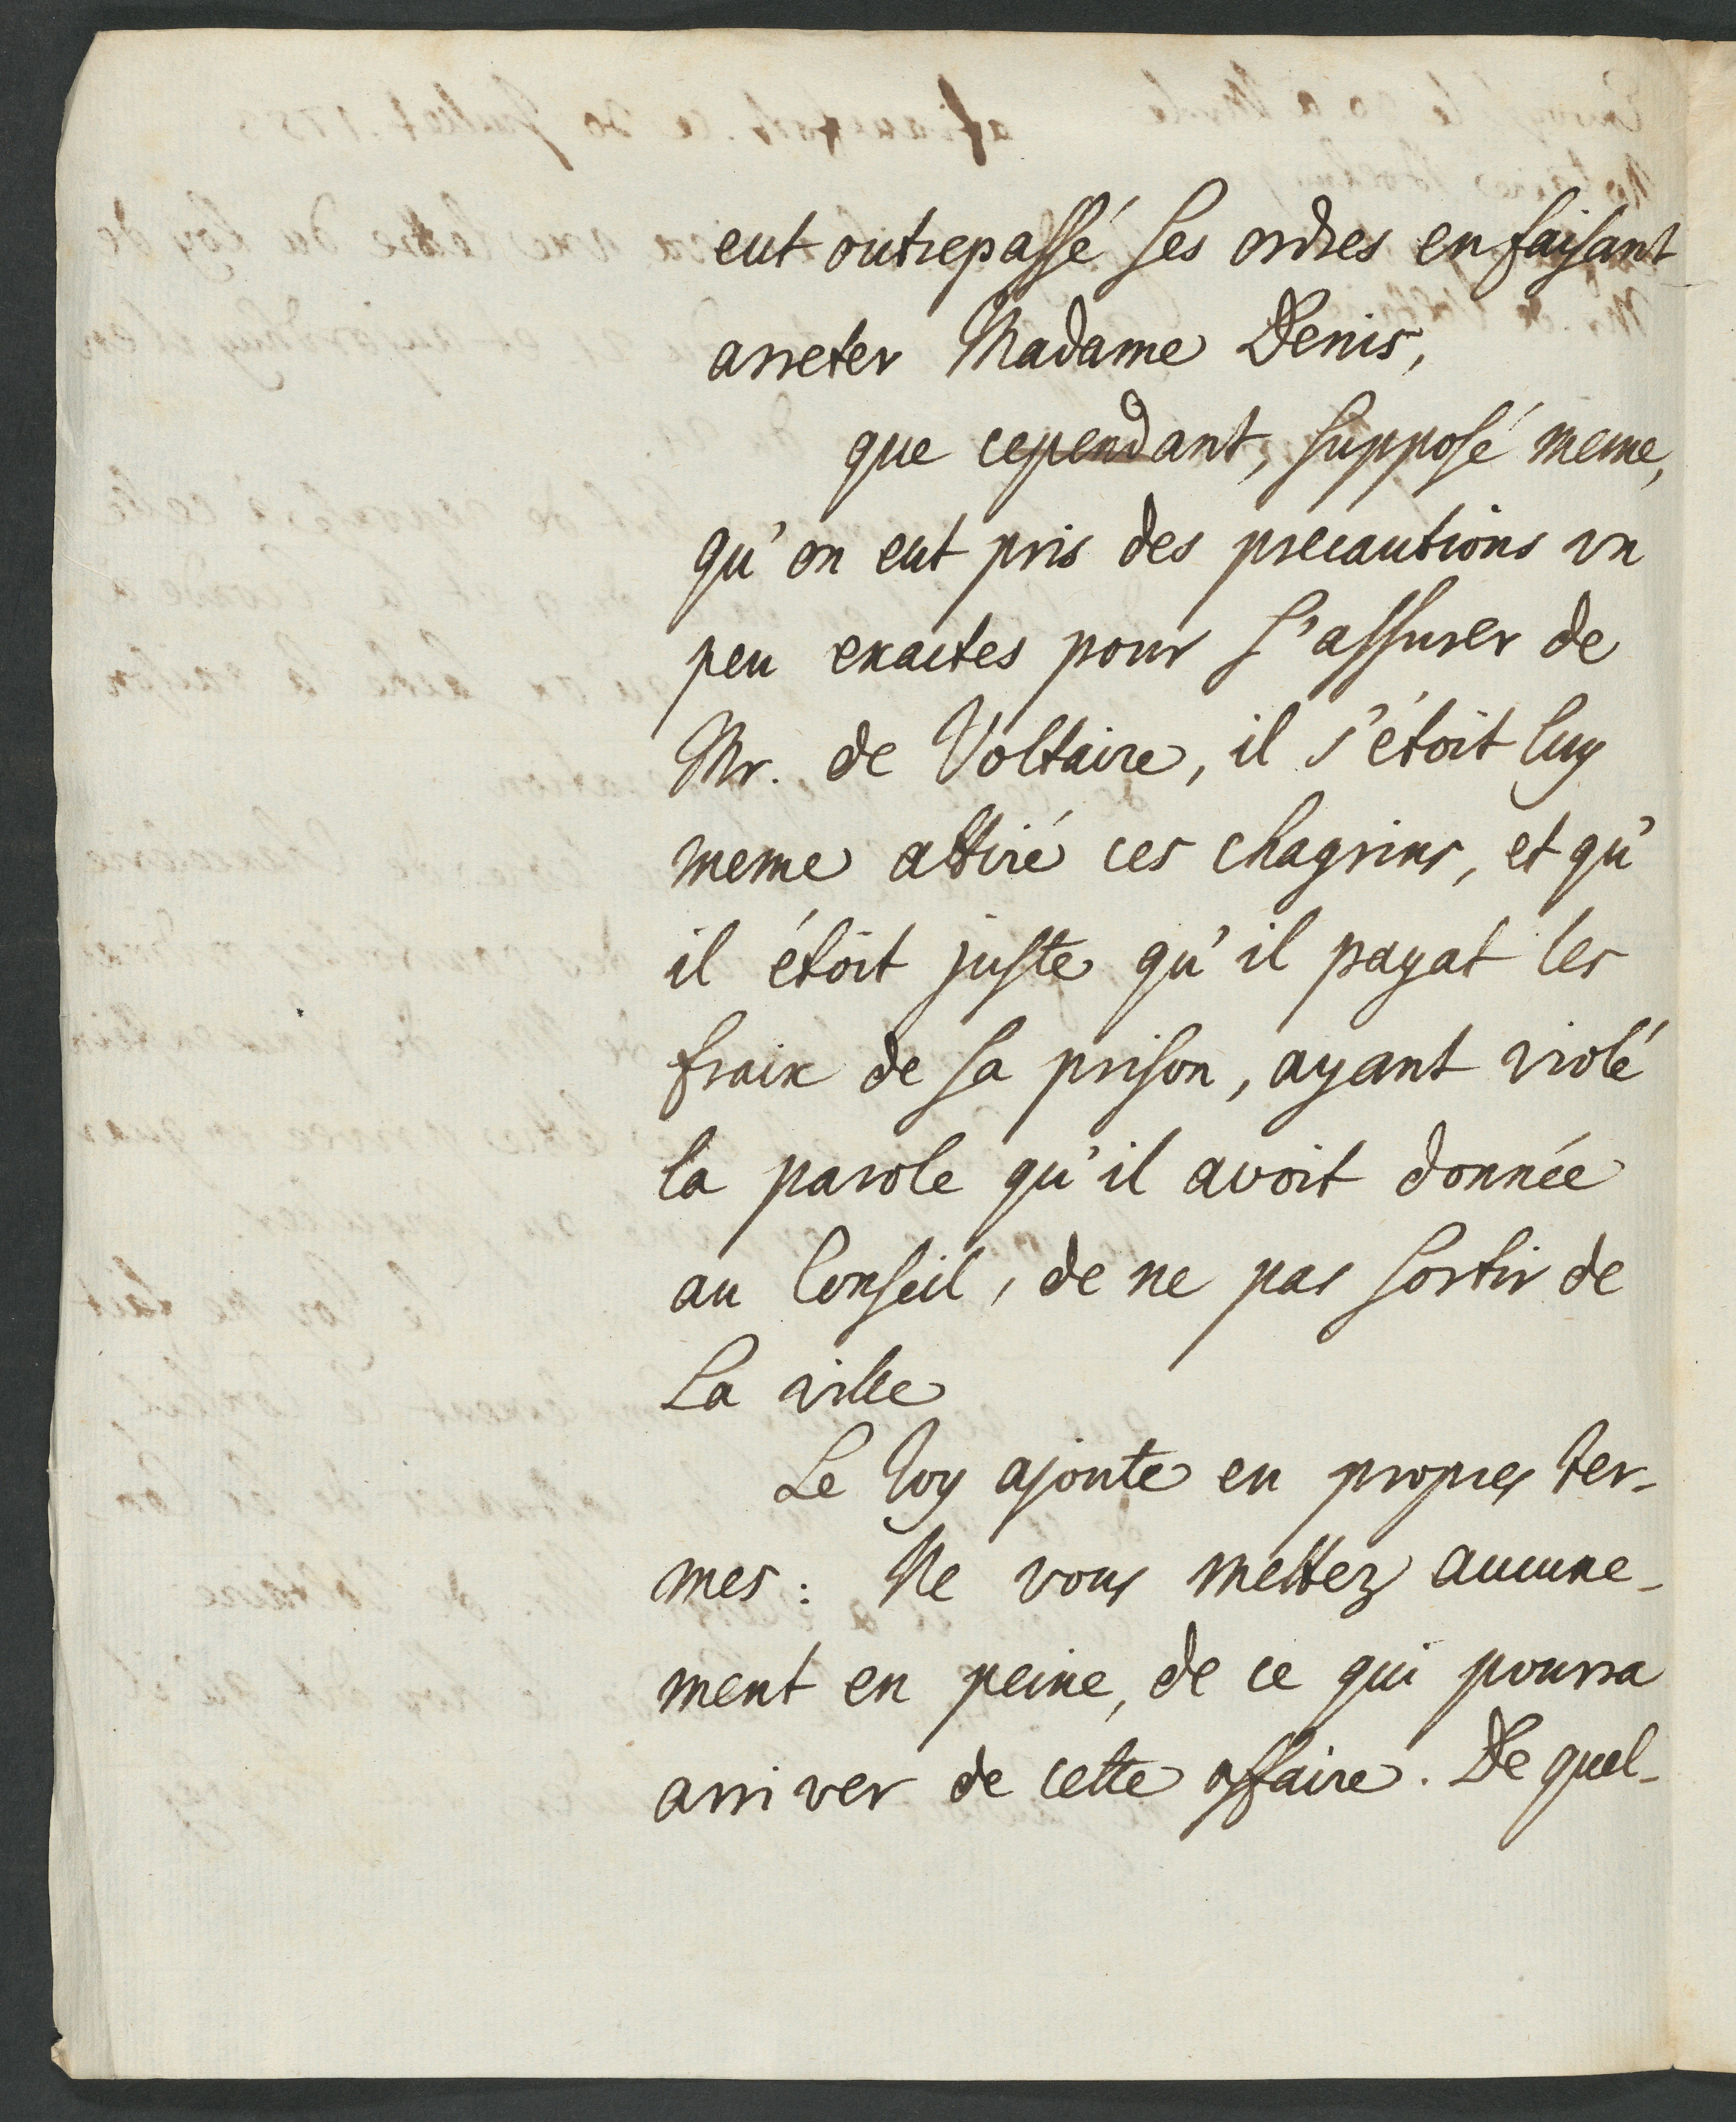 eut outrepassé ses ordres en faisant
arreter Madame Denis,
que cependant, supposé meme,
qu'on eut pris des precautions un
peu exactes pour s'assurer de
Mr. de Voltaire, il s'étoit luy
meme attiré ces chagrins, et qu'
il étoit juste qu'il payat les
fraix de sa prison, ayant violé
la parole qu'il avoit donnée
au Conseil, de ne pas sortir de
la ville
Le Roy ajoute en propres ter-
mes: Ne vous mettez aucune-
ment en peine, de ce qui pourra
arriver de cette affaire. De quel-